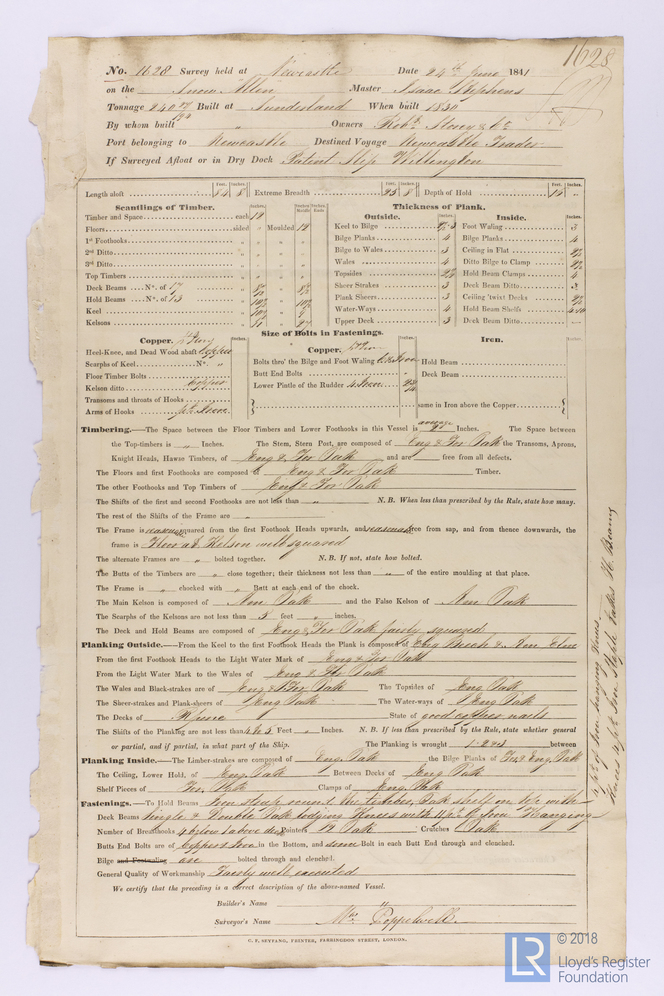 1628
No. 1628 Survey held at Newcastle Date 24th June 1841
on the Snow Allen Master Isaac Stephens
Tonnage 240 Built at Sunderland When built 1830
By whom built " Owners Robt. Storey & Co
Port belonging to Newcastle Destined Voyage Newcastle Trader
If Surveyed Afloat or in Dry Dock Patent Slip Willington
Feet. Inches. Feet. Inches. Feet. Inches.
Length aloft 8 Extreme Breadth 25 8 Depth of Hold 16 "
Scantlings of Timber. Thickness of Plank.
Outside. Inside.
Timber and Space each
Floors sided " Moulded 12
1st Foothooks " " "
2nd Ditto " " "
3rd Ditto " " "
Top Timbers " " "
Deck Beams No. of 17
Hold Beams No. of 13
Keel
Kelsons
Keel to Bilge
Bilge Planks 4
Bilge to Wales 3
Wales 4
Topsides 2½
Sheer Strakes 3
Plank Sheers 3
Water-Ways 4
Upper Deck 3
Foot Waling 3
Bilge Planks 4
Ceiling in Flat 2½
Ditto Bilge to Clamp 2½
Hold Beam Clamps 4
Deck Beam Ditto 3
Ceiling 'twixt Decks 2½
Hold Beam Shelfs
Deck Beam Ditto
Size of Bolts in Fastenings.
Copper. Iron
Heel-Knee, and Dead Wood abaft Copper
Scarphs of Keel No. "
Floor Timber Bolts
Kelson ditto Copper
Transoms and throats of Hooks
Arms of Hooks pt. Iron
Copper.
Bolts thro' the Bilge and Foot Waling Iron
Butt End Bolts "
Lower Pintle of the Rudder Iron
Iron.
Hold Beam
Deck Beam
same in Iron above the Copper
Timbering.—The Space between the Floor Timbers and Lower Foothooks in this Vessel is average Inches. The Space between
the Top-timbers is " Inches. The Stem, Stern Post, are composed of Eng & For Oak the Transoms, Aprons,
Knight Heads, Hawse Timbers, of Eng & For Oak and are free from all defects.
The Floors and first Foothooks are composed of Eng & For Oak Timber.
The other Foothooks and Top Timbers of Eng & For Oak
The Shifts of the first and second Foothooks are not less than " N.B. When less than prescribed by the Rule, state how many.
The rest of the Shifts of the Frame are "
The Frame is reason squared from the first Foothook Heads upwards, and reasonable free from sap, and from thence downwards, the
frame is Floor at Kelson well squared
The alternate Frames are " bolted together. N.B. If not, state how bolted.
The Butts of the Timbers are " close together; their thickness not less than " of the entire moulding at that place.
The Frame is " chocked with " Butt at each end of the chock.
The Main Kelson is composed of Am Oak and the False Kelson of Am Oak
The Scarphs of the Kelsons are not less than 5 feet " inches.
The Deck and Hold Beams are composed of Eng & For Oak fairly squared
Planking Outside.—From the Keel to the first Foothook Heads the Plank is composed of Eng Beech & Am Elm
From the first Foothook Heads to the Light Water Mark of Eng & For Oak
From the Light Water Mark to the Wales of Eng & For Oak
The Wales and Black-strakes are of Eng & For Oak The Topsides of Eng Oak
The Sheer-strakes and Plank-sheers of Eng Oak The Water-ways of Eng Oak
The Decks of P Pine State of good
The Shifts of the Planking are not less than 4 & 5 Feet " Inches. N.B. If less than prescribed by the Rule, state whether general
or partial, and if partial, in what part of the Ship. The Planking is wrought 1.2 & 3 between
Planking Inside.—The Limber-strakes are composed of Eng. Oak the Bilge Planks of For & Eng. Oak
The Ceiling, Lower Hold, of Eng. Oak Between Decks of Eng Oak
Shelf Pieces of For. Oak Clamps of Eng. Oak
Fastenings.—To Hold Beams Iron strap round the timber, Oak shelf on top with
Deck Beams Single & Double Oak lodging Knees with 11 prs of Iron Hanging
Number of Breasthooks 4 below 1 above deck Pointers 12 Oak Crutches 1 Oak
Butts End Bolts are of Copper & Iron in the Bottom, and some Bolt in each Butt End through and clenched.
Bilge and Footwaling are bolted through and clenched.
General Quality of Workmanship Fairly well executed
We certify that the preceding is a correct description of the above-named Vessel.
Builder's Name "
Surveyor's Name Wm. Poppelwell
C. F. SEYFANG, PRINTER, FARRINGDON STREET, LONDON.
prs of Iron hanging Knees
Knees & prs Iron Staple Lodks H. Beams
LR
© 2018
Lloyd's Register
Foundation